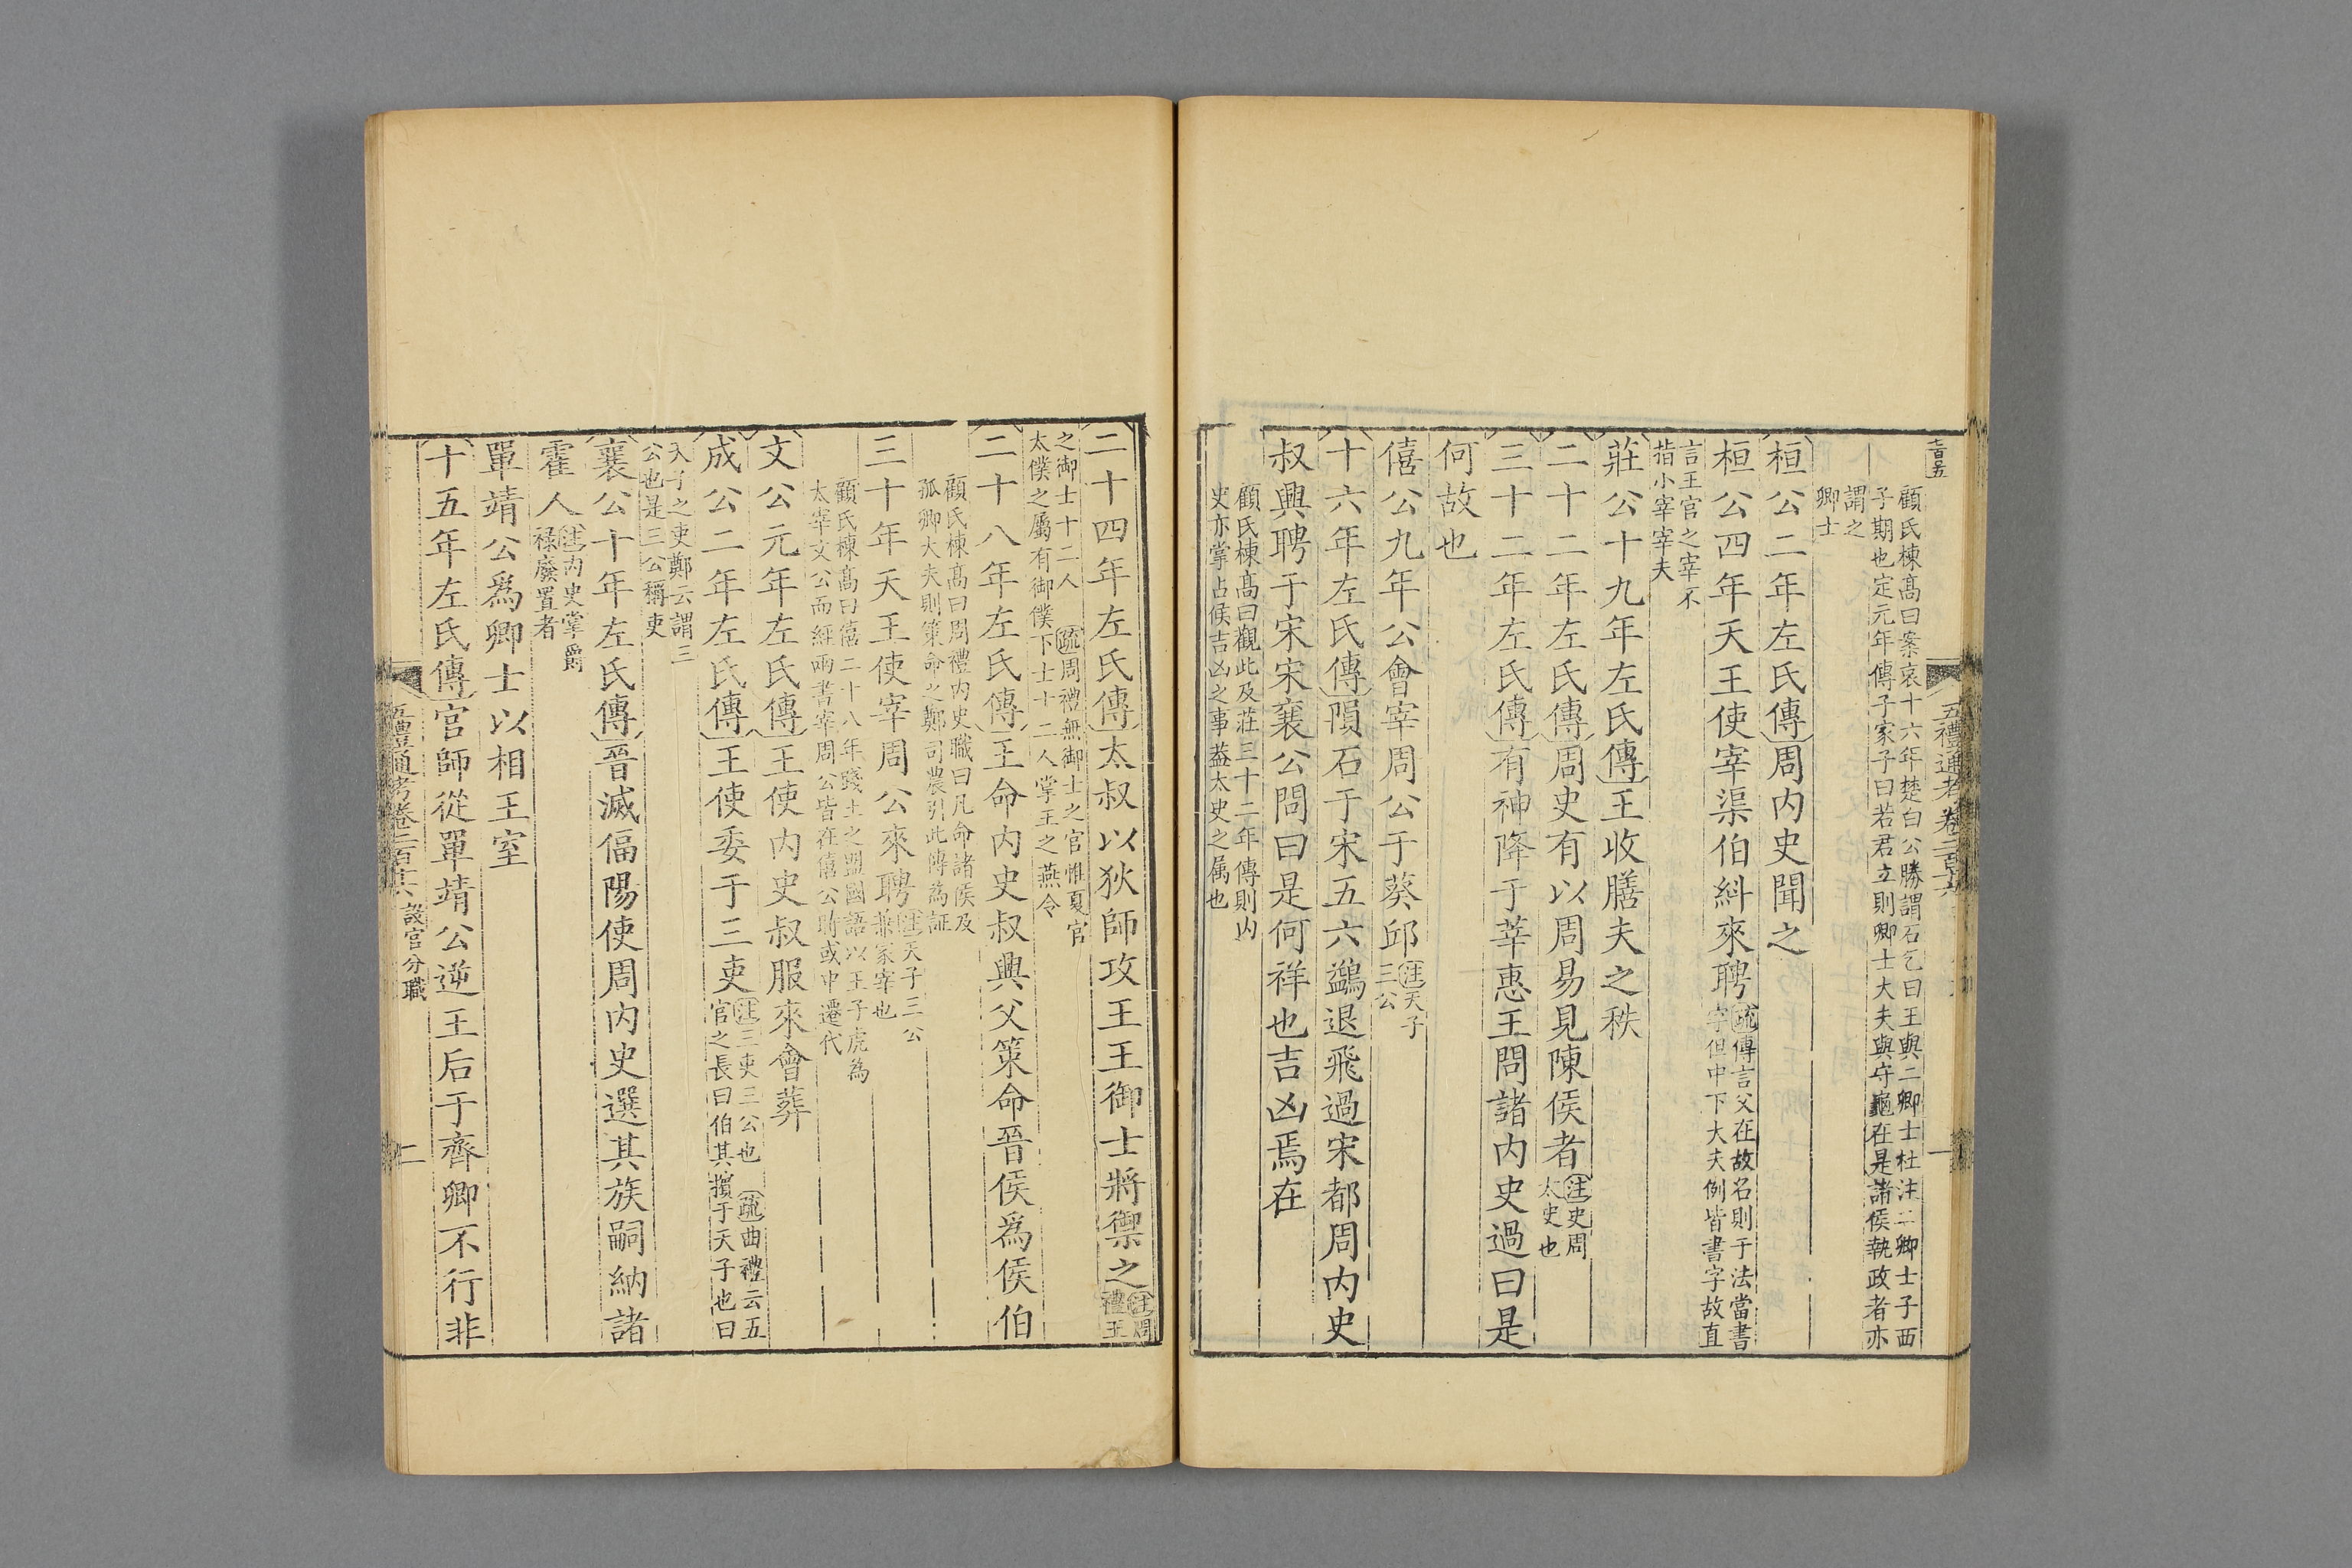 五禮通考卷二百十六
一
顧氏棟高曰案哀十六年楚白公勝謂石乞曰王與二卿士杜注二卿士子西
子期也定元年傳子家子曰若君立則卿士大夫與守龜在是諸侯執政者亦
謂之
卿士
桓公二年左氏傳周内史聞之
桓公四年天王使宰渠伯糾來聘疏傳言父在故名則于法當書
字但中下大夫例皆書字故直
言王官之宰不
指小宰宰夫
莊公十九年左氏傳王收膳夫之秩
二十二年左氏傳周史有以周易見陳侯者注史周
太史也
三十二年左氏傳有神降于莘惠王問諸内史過曰是
何故也
僖公九年公會宰周公于葵邱注天子
三公
十六年左氏傳隕石于宋五六鷁退飛過宋都周内史
叔興聘于宋宋襄公問曰是何祥也吉凶焉在
顧氏棟高曰觀此及莊三十二年傳則内
史亦掌占候吉凶之事葢太史之属也
二十四年左氏傳太叔以狄師攻王王御士將禦之注周
禮王
之御士十二人 疏周禮無御士之官惟夏官
太僕之屬有御僕下士十二人掌王之燕令
二十八年左氏傳王命内史叔興父策命晉侯爲侯伯
顧氏棟高曰周禮内史職曰凡命諸侯及
孤卿大夫則策命之鄭司農引此傳為証
三十年天王使宰周公來聘注天子三公
兼冢宰也
顧氏棟高曰僖二十八年踐土之盟國語以王子虎為
太宰文公而經兩書宰周公皆在僖公時或中遷代
文公元年左氏傳王使内史叔服來會葬
成公二年左氏傳王使委于三吏注三吏三公也 疏曲禮云五
官之長曰伯其擯于天子也曰
天子之吏鄭云謂三
公也是三公稱吏
襄公十年左氏傳晉滅偪陽使周内史選其族嗣納諸
霍人注内史掌爵
禄廢置者
單靖公爲卿士以相王室
十五年左氏傳官師從單靖公逆王后于齊卿不行非
五禮通考卷二百十六 設官分職
二